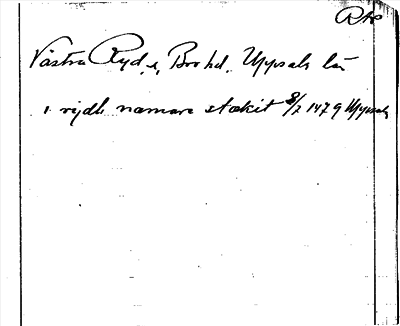 Västra Ryd, s, Bro hd. Uppsala län
i rydh närnare stækit 8/2 1479 Uppsala